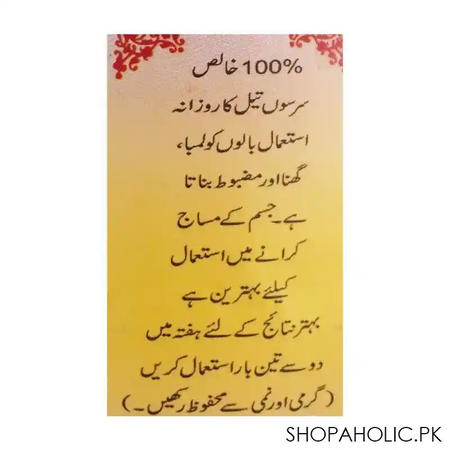 100% خالص
سرسوں تیل کا روزانہ
استعمال بالوں کو لمبا،
گھنا اور مضبوط بناتا
ہے۔ جسم کے مساج
کرانے میں استعمال
کیلئے بہترین ہے
بہتر نتائج کے لئے ہفتہ میں
دو سے تین بار استعمال کریں
(گرمی اور نمی سے محفوظ رکھیں۔)
SHOPAHOLIC.PK